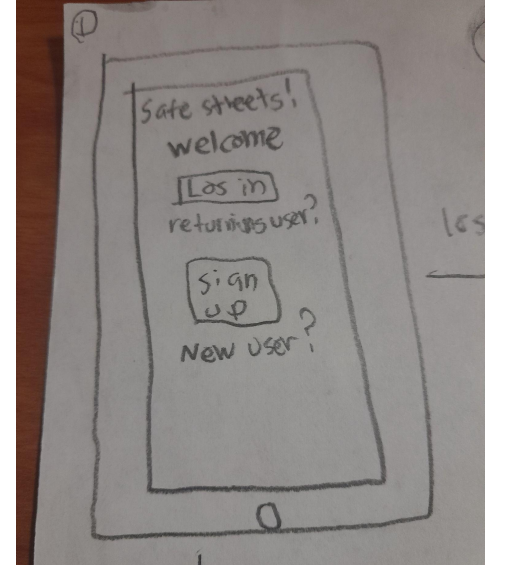 1
Safe streets!
welcome
Log in
returning user?
sign
up
New user?